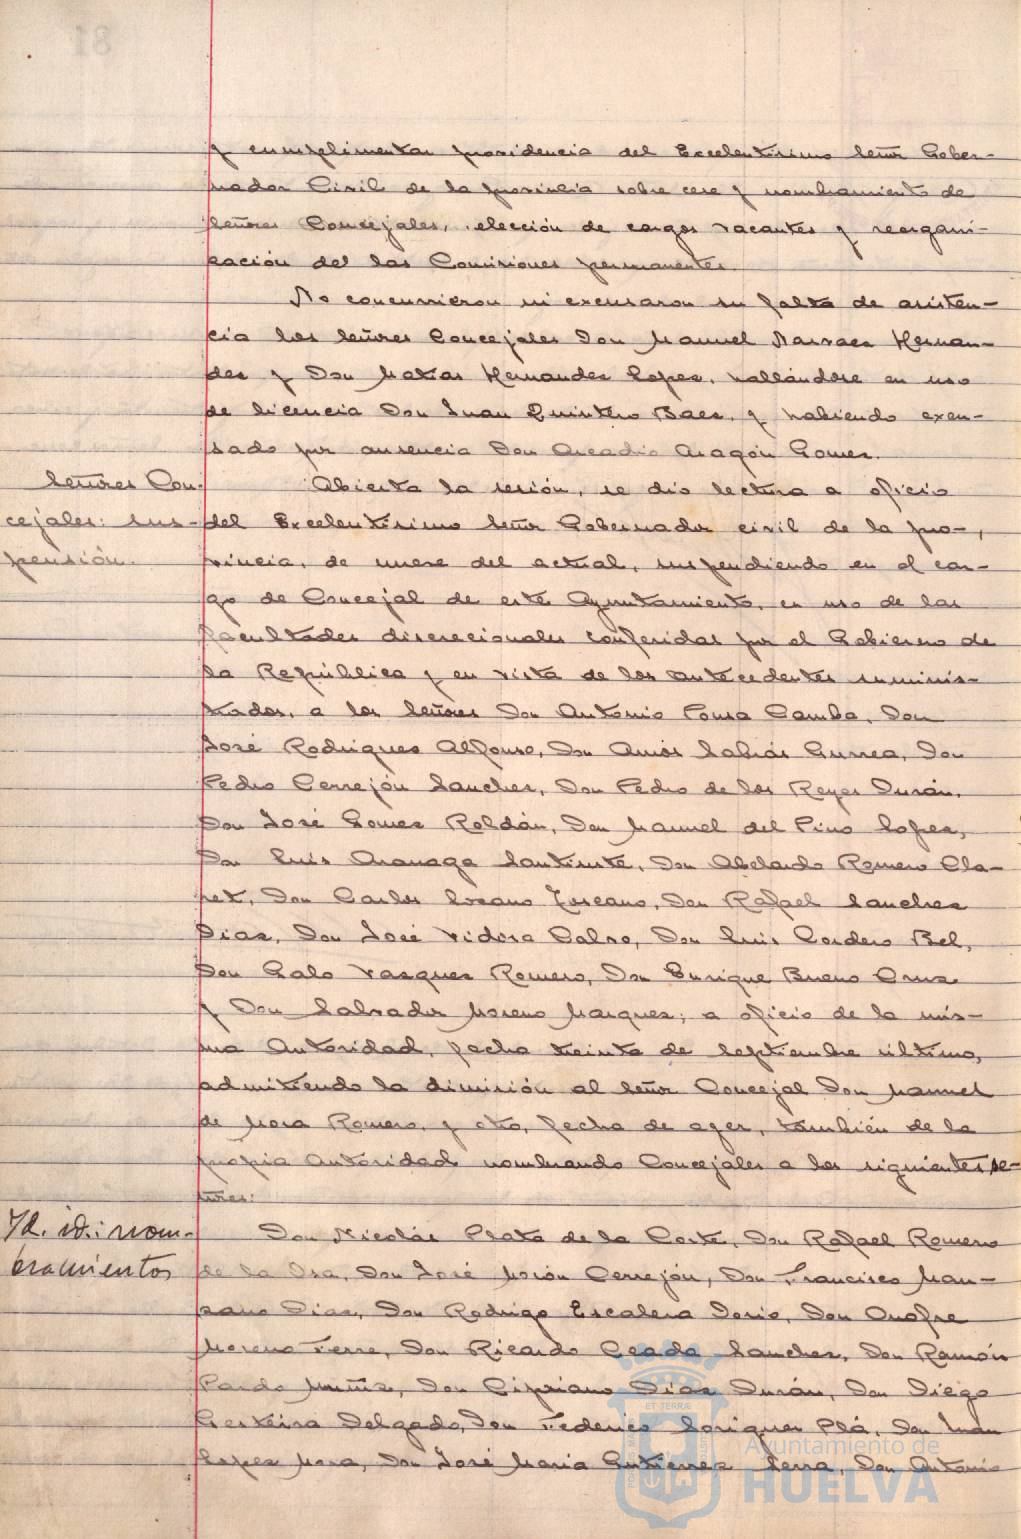 y cumplimentar providencia del Excelentísimo Señor Gober-
nador Civil de la provincia sobre cese y nombramiento de
Señores Concejales, elección de cargos vacantes y reorgani-
zación del las Comisiones permanentes.
No concurrieron ni excusaron su falta de asisten-
cia los Señores Concejales Don Manuel Narvaez Hernan-
dez y Don Matias Hernandez Lopez, hallándose en uso
de licencia Don Juan Quintero Baez, y habiendo excu-
sado por ausencia Don Arcadio Aragón Gomez.
Señores Con-
cejales: sus-
pensión.
Abierta la sesión, se dio lectura a oficio
del Excelentísimo Señor Gobernador civil de la pro-
vincia, de nueve del actual, suspendiendo en el car-
go de Concejal de este Ayuntamiento, en uso de las
facultades discrecionales conferidas por el Gobierno de
la República y en vista de los antecedentes suminis-
trados, a los Señores Don Antonio Pousa Camba, Don
José Rodriguez Alfonso, Don Amós Sabrás Gurrea, Don
Pedro Cerrejón Sanchez, Don Pedro de los Reyes Durán,
Don José Gomez Roldán, Don Manuel del Pino Lopez,
Don Luis Aranaga Santiuste, Don Abelardo Romero Cla-
ret, Don Carlos Lozano Toscano, Don Rafael Sanchez
Diaz, Don José Vidosa Calvo, Don Luis Cordero Bel,
Don Galo Vazquez Romero, Don Enrique Bueno Cruz
y Don Salvador Moreno Marquez; a oficio de la mis-
ma Autoridad, fecha treinta de Septiembre último,
admitiendo la dimisión al Señor Concejal Don Manuel
de Mora Romero, y otro, fecha de ayer, también de la
propia Autoridad nombrando Concejales a los siguientes se-
ñores:
Id. id.: nom-
bramientos
Don Nicolás Plata de la Corte, Don Rafael Romero
de la Osa, Don José Morón Cerrejón, Don Francisco Man-
zano Diaz, Don Rodrigo Escalera Dorio, Don Onofre
Moreno Ferre, Don Ricardo Ceada Sanchez, Don Ramón
Pardo Muñiz, Don Cipriano Diaz Durán, Don Diego
Gesteira Delgado, Don Federico Soriguer Plá, Don Juan
Lopez Mora, Don José Maria Gutierrez Serra, Don Antonio
Ayuntamiento de
HUELVA